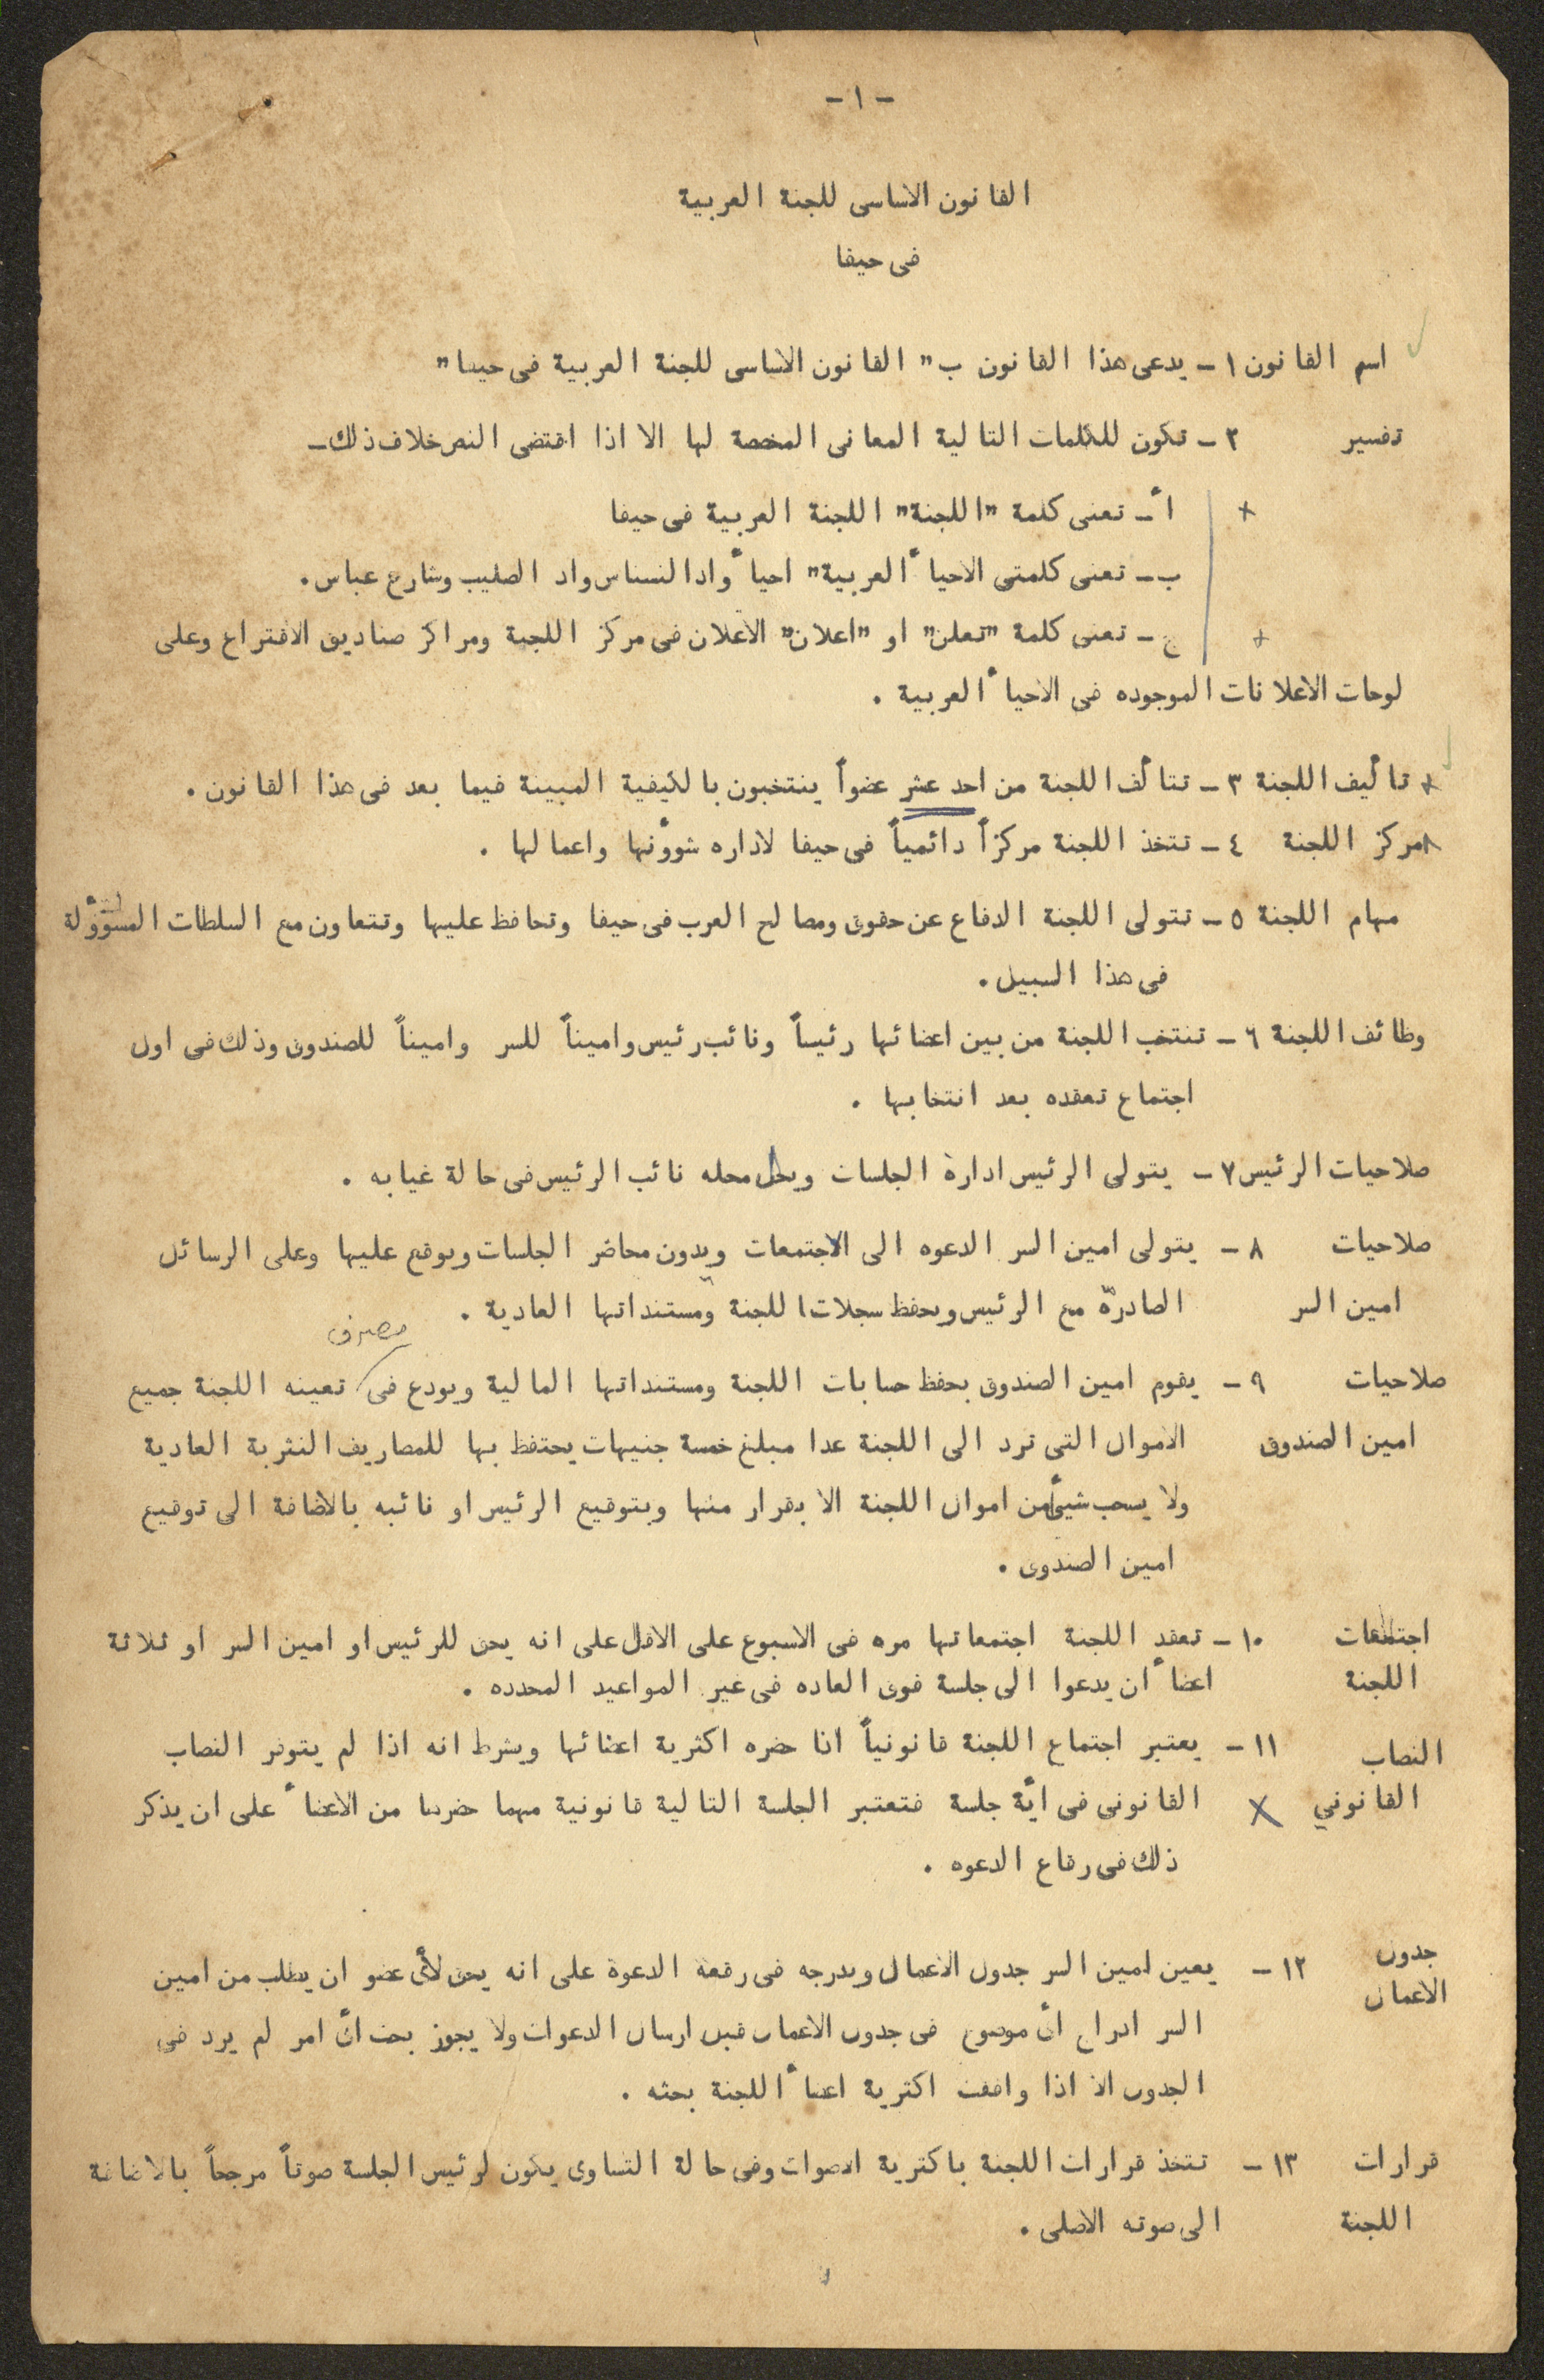 - ١ -
القانون الاساسى للجنة العربية
فى حيفا
اسم القانون ١ - يدعى هذا القانون ب" القانون الاساسى للجنة العربية فى حيفا"
تفسير ٢ - تكون للكلمات التالية المعانى المخصصة لها الا اذا اقتضى النص خلاف ذلك -
أ - تعنى كلمة "اللجنة" اللجنة العربية فى حيفا
ب - تعنى كلمتى الاحياء العربية" احياء واد النسناس واد الصليب وشارع عباس .
ج - تعنى كلمة "تعلن" او "اعلان" الاعلان فى مركز اللجنة ومراكز صناديق الاقتراع وعلى
لوحات الاعلانات الموجوده فى الاحياء العربية .
تأليف اللجنة ٣ - تتألف اللجنة من احد عشر عضواً ينتخبون بالكيفية المبينة فيما بعد فى هذا القانون .
مركز اللجنة ٤ - تتخذ اللجنة مركزاً دائمياً فى حيفا لاداره شؤونها واعمالها .
مهام اللجنة ٥ - تتولى اللجنة الدفاع عن حقوق ومصالح العرب فى حيفا وتحافظ عليها وتتعاون مع السلطات المسؤولة
فى هذا السبيل .
وظائف اللجنة ٦ - تنتخب اللجنة من بين اعضائها رئيساً ونائب رئيس واميناً للسر واميناً للصندوق وذلك فى اول
اجتماع تعقده بعد انتخابها .
صلاحيات الرئيس ٧ - يتولى الرئيس ادارة الجلسات ويحل محله نائب الرئيس فى حالة غيابه .
صلاحيات ٨ - يتولى امين السر الدعوه الى الاجتمعات ويدون محاضر الجلسات ويوقع عليها وعلى الرسائل
امين السر الصادرة مع الرئيس ويحفظ سجلات اللجنة ومستنداتها العادية .
مصرف
صلاحيات ٩ - يقوم امين الصندوق بحفظ حسابات اللجنة ومستنداتها المالية ويودع فى تعينه اللجنة جميع
امين الصندوق الاموال التى ترد الى اللجنة عدا مبلغ خمسة جنيهات يحتفظ بها للمصاريف النثرية العادية
ولا يسحب شيئ من اموال اللجنة الا بقرار منها وبتوقيع الرئيس او نائبه بالاضافة الى توقيع
امين الصندوق .
اجتماعات ١٠ - تعقد اللجنة اجتمعاتها مره فى الاسبوع على الاقل على انه يحق للرئيس او امين السر او ثلاثة
اللجنة اعضاء ان يدعوا الى جلسة فوق العاده فى غير المواعيد المحدده .
النصاب ١١ - يعتبر اجتماع اللجنة قانونياً اذا حضره اكثرية اعضائها ويشرط انه اذا لم يتوفر النصاب
القانوني القانونى فى أية جلسة فتعتبر الجلسة التالية قانونية مهما حضرها من الاعضاء على ان يذكر
ذلك فى رقاع الدعوه .
جدول ١٢ - يعين امين السر جدول الاعمال ويدرجه فى رقعة الدعوة على انه يحق لأى عضو ان يطلب من امين
الاعمال
السر ادراج أى موضوع فى جدول الاعمال قبل ارسال الدعوات ولا يجوز بحث أى امر لم يرد فى
الجدول الا اذا وافقت اكثرية اعضاء اللجنة بحثه .
قرارات ١٣ - تتخذ قرارات اللجنة باكثرية الاصوات وفى حالة التساوى يكون لرئيس الجلسة صوتاً مرجحاً بالاضافة
اللجنة الى صوته الاصلى .